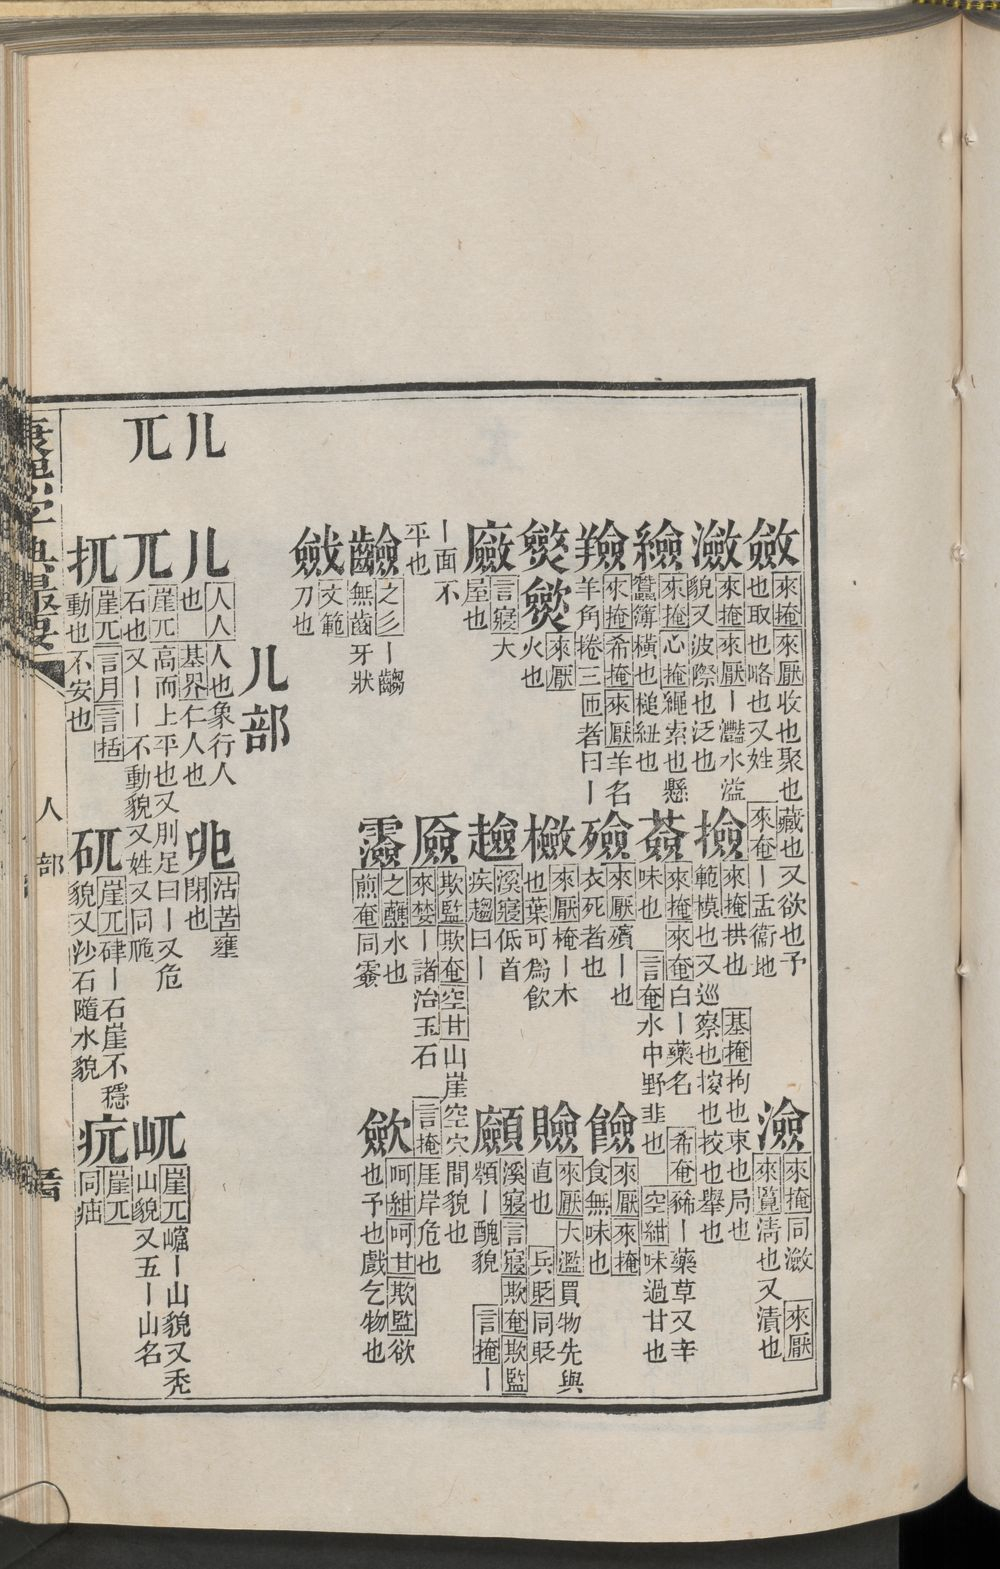 斂 來掩來厭收也聚也藏也又欲也予
也取也略也又姓 來奄丨盂衞地
瀲 來掩來厭丨灩水溢
貌又波際也泛也
繎 來掩心掩繩索也懸
蠶簿橫也槌紐也
羷 來掩希掩來厭羊名
羊角捲三匝者曰丨
來厭
火也
厰 言寢大
屋也
丨面不
平也
之彡丨齺
無齒牙狀
文範
刀也
瀲 來掩同瀲 來厭
來覧清也又漬也
撿 來掩拱也 基掩拘也束也局也
範模也又巡察也按也校也舉也
薟 來掩來奄白丨藥名 希奄豨丨藥草又辛
味也 言奄水中野韭也 空紺味過甘也
殮 來厭殯丨也
衣死者也
來厭掩丨木
也葉可爲飲
溪寢低首
疾趨曰丨
欺監欺奄空甘山崖空穴間貌也
來婪丨諸治玉石 言掩厓岸危也
之蘸水也
煎奄同霎
來厭來掩
食無味也
來厭大濫買物先與
直也 兵貶同貶
溪寢言寢欺奄欺監
顩丨醜貌 言掩丨
呵紺呵甘欺監欲
也予也戲乞物也
儿部
儿
儿 人人人也象行人
也 基界仁人也
沽苦壅
閉也
兀
兀 崖兀高而上平也又刖足曰丨又危
石也又丨丨不動貌又姓又同卼
屼 崖兀崛丨山貌又禿
山貌又五丨山名
扤 崖兀言月言括
動也不安也
矹 崖兀硉丨石崖不穩
貌又沙石隨水貌
崖兀
同
康熙字典撮要
人部